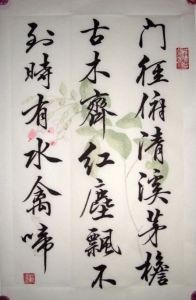 门径俯清溪茅檐
古木齐红尘飘不
到時有水禽啼